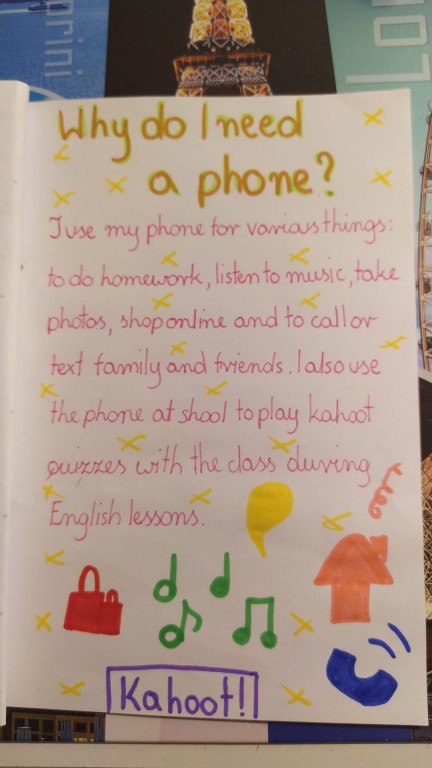 Why do I need
a phone?
I use my phone for various things:
to do homework, listen to music, take
photos, shop online and to call or
text family and friends. I also use
the phone at shool to play kahoot
quizzes with the class during
English lessons.
Kahoot!